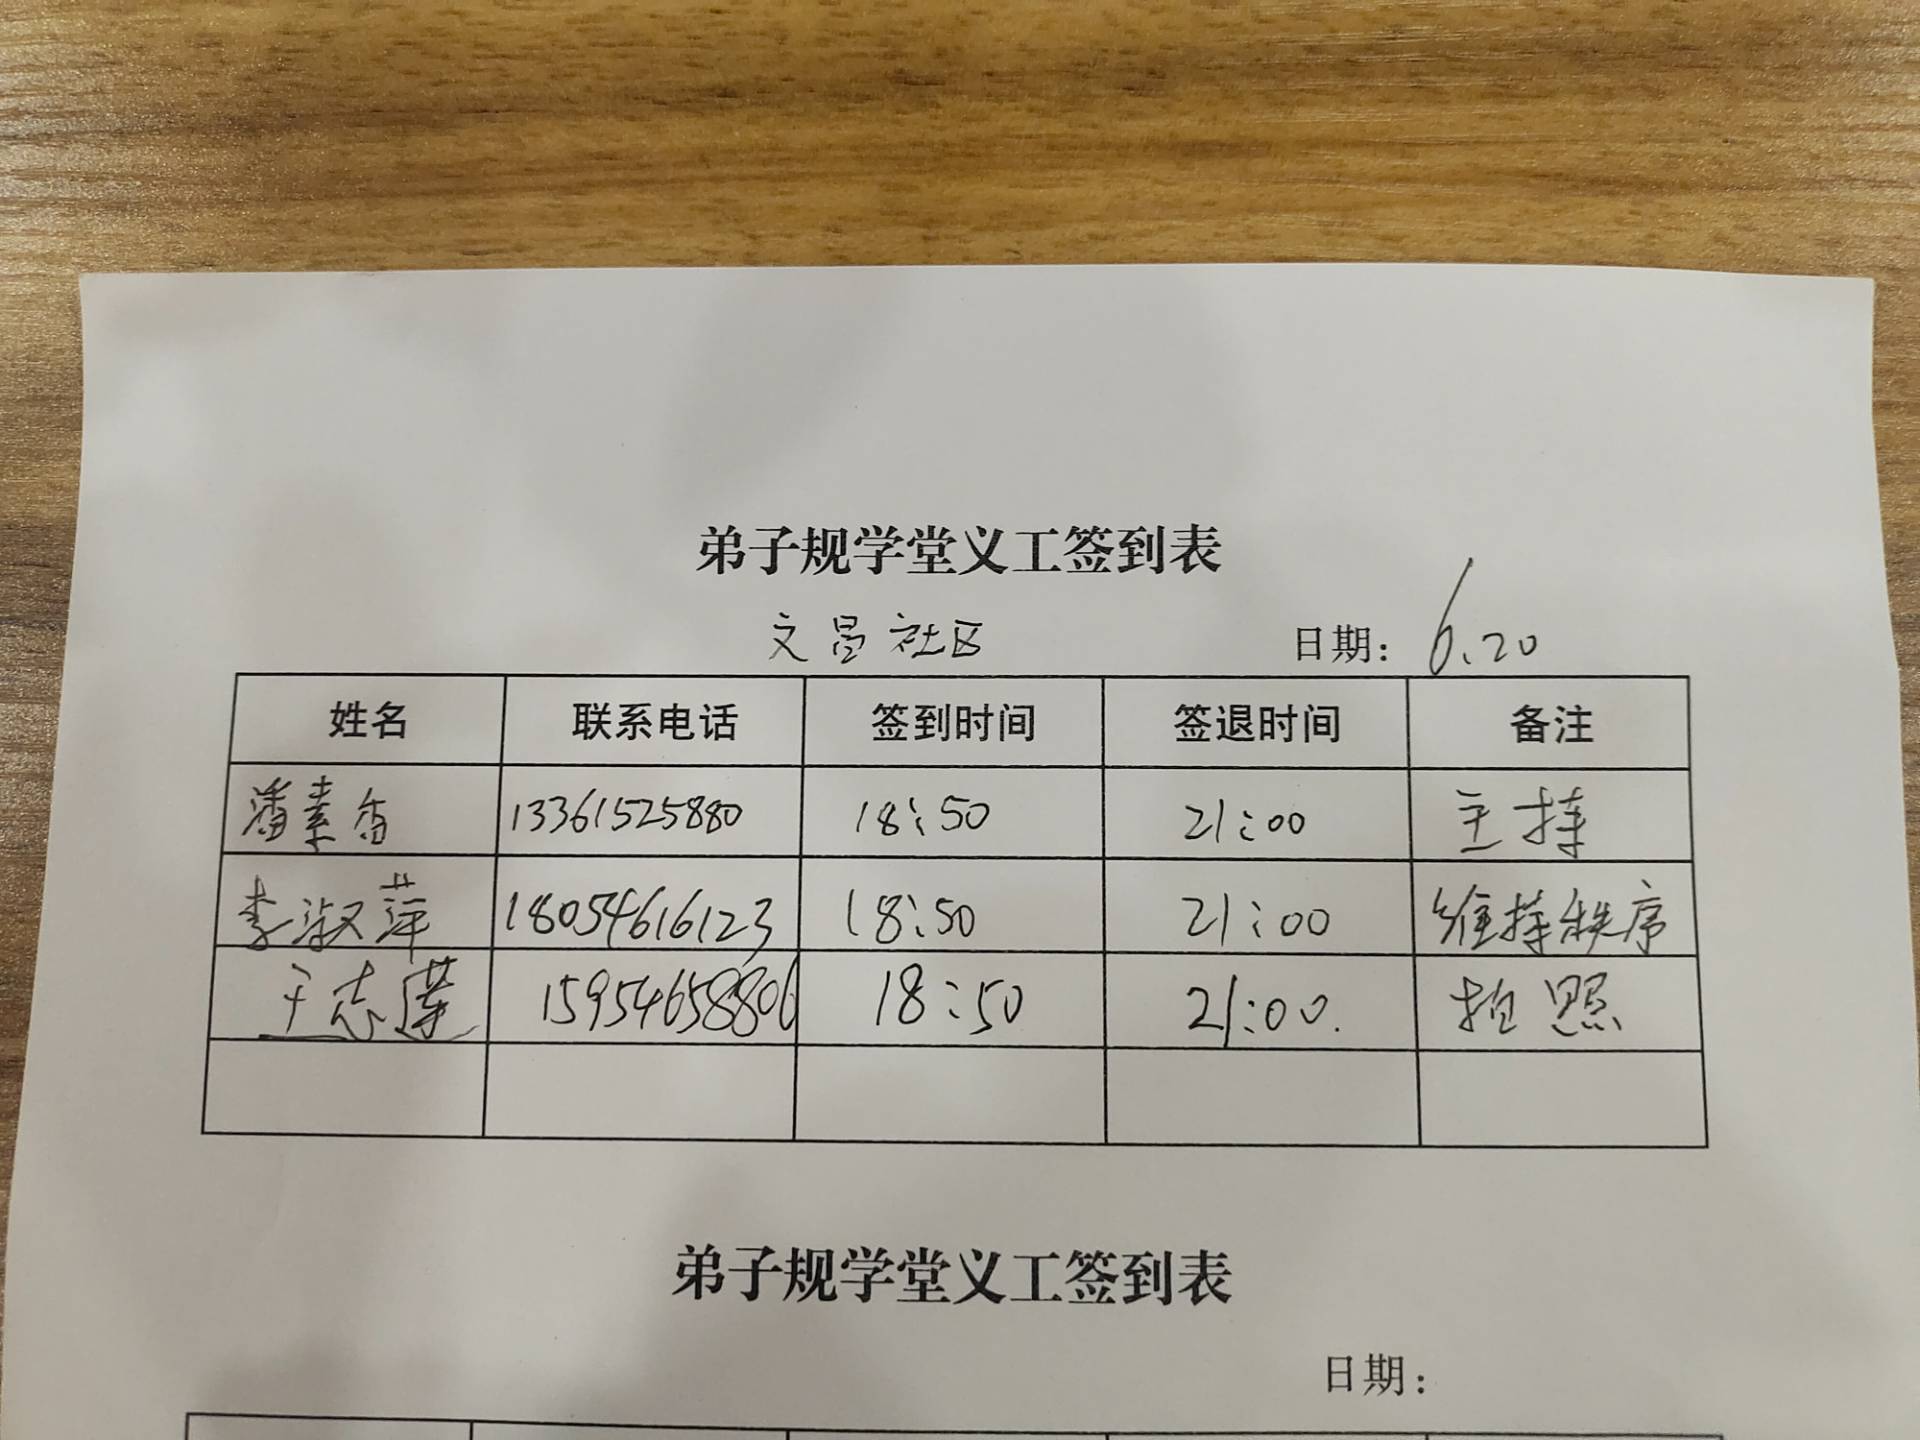 弟子规学堂义工签到表
文昌社区 日期：6.20
姓名 联系电话 签到时间 签退时间 备注
潘素香 13361525880 18:50 21:00 主持
李淑萍 18054616123 18:50 21:00 维持秩序
王志莲 15954658806 18:50 21:00. 拍照
弟子规学堂义工签到表
日期：